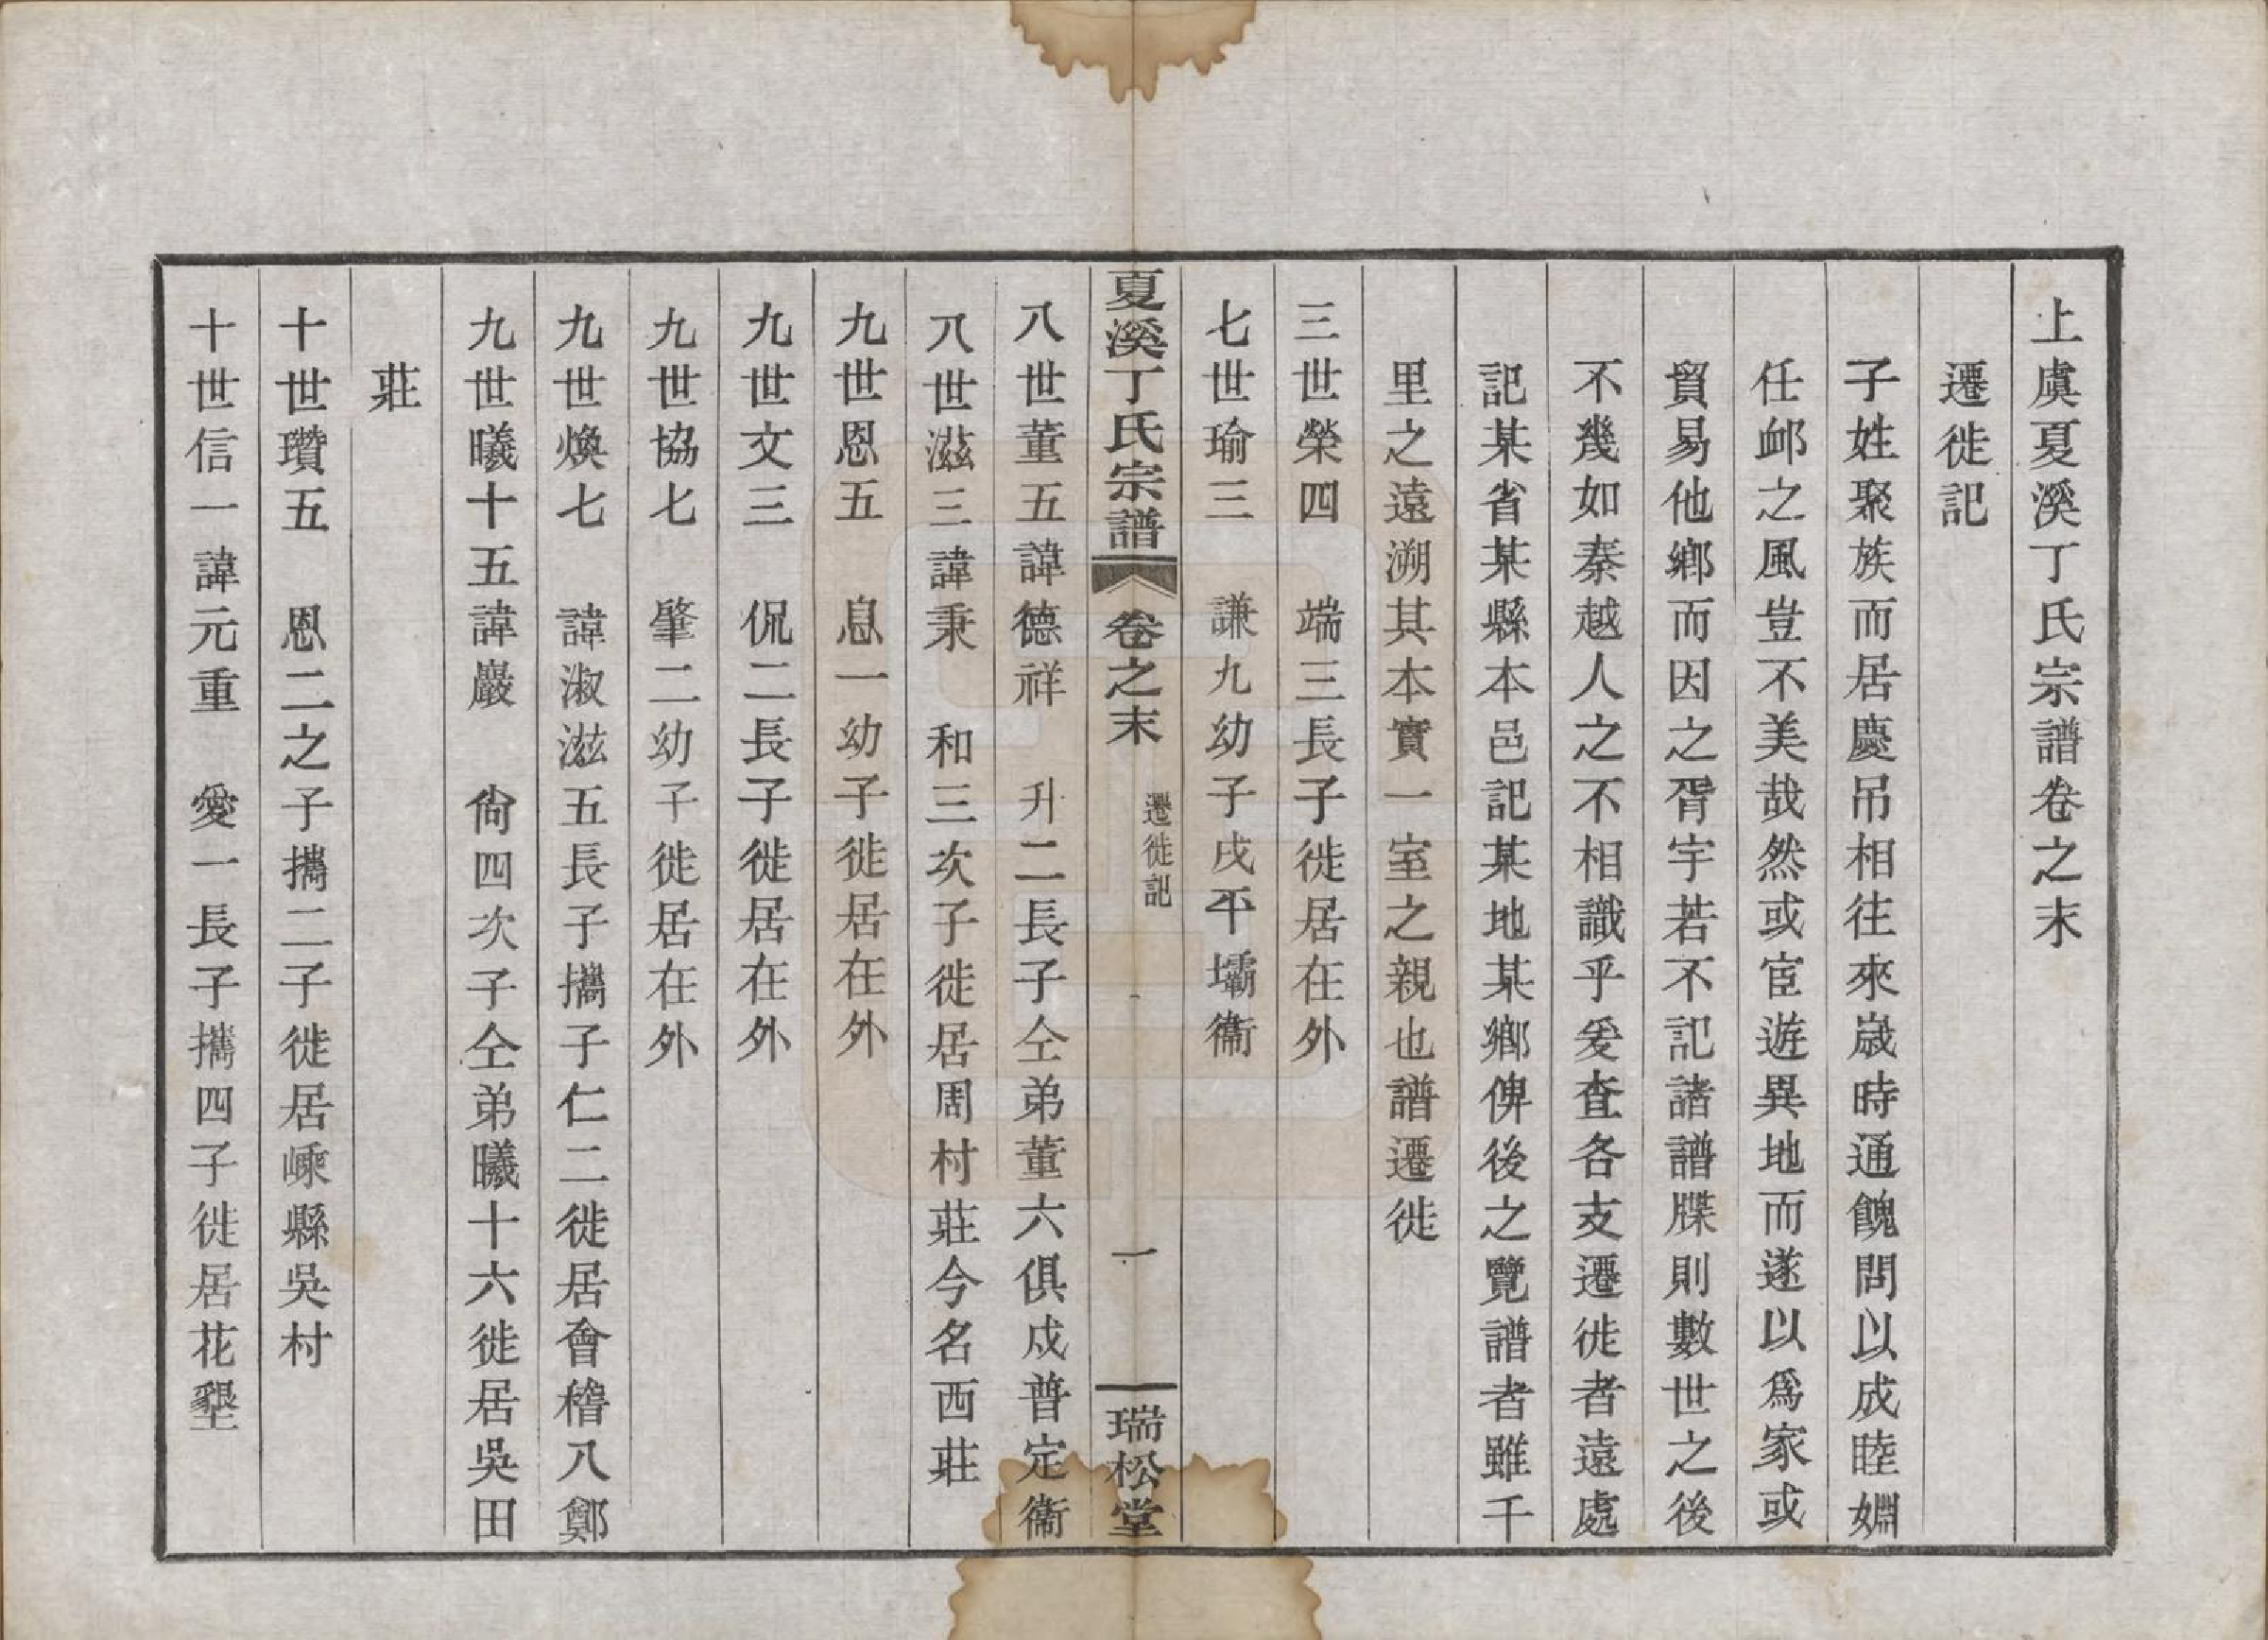 上虞夏溪丁氏宗譜卷之末
遷徙記
子姓聚族而居慶吊相往來歲時通餽問以成睦婣
任䘏之風豈不美哉然或宦遊異地而遂以爲家或
貿易他鄉而因之胥宇若不記諸譜牒則數世之後
不幾如秦越人之不相識乎爰查各支遷徙者遠處
記某省某縣本邑記某地某鄉俾後之覽譜者雖千
里之遠溯其本實一室之親也譜遷徙
三世榮四　端三長子徙居在外
七世瑜三　謙九幼子戍平壩衞
夏溪丁氏宗譜　卷之末　遷徙記　一　瑞松堂
八世董五諱德祥　升二長子仝弟董六俱戍普定衞
八世滋三諱秉　和三次子徙居周村莊今名西莊
九世恩五　息一幼子徙居在外
九世文三　侃二長子徙居在外
九世協七　肇二幼子徙居在外
九世煥七　諱淑滋五長子攜子仁二徙居會稽八鄭
九世曦十五諱巖　尙四次子仝弟曦十六徙居吳田
莊
十世瓚五　恩二之子攜二子徙居嵊縣吳村
十世信一諱元重　愛一長子攜四子徙居花墾